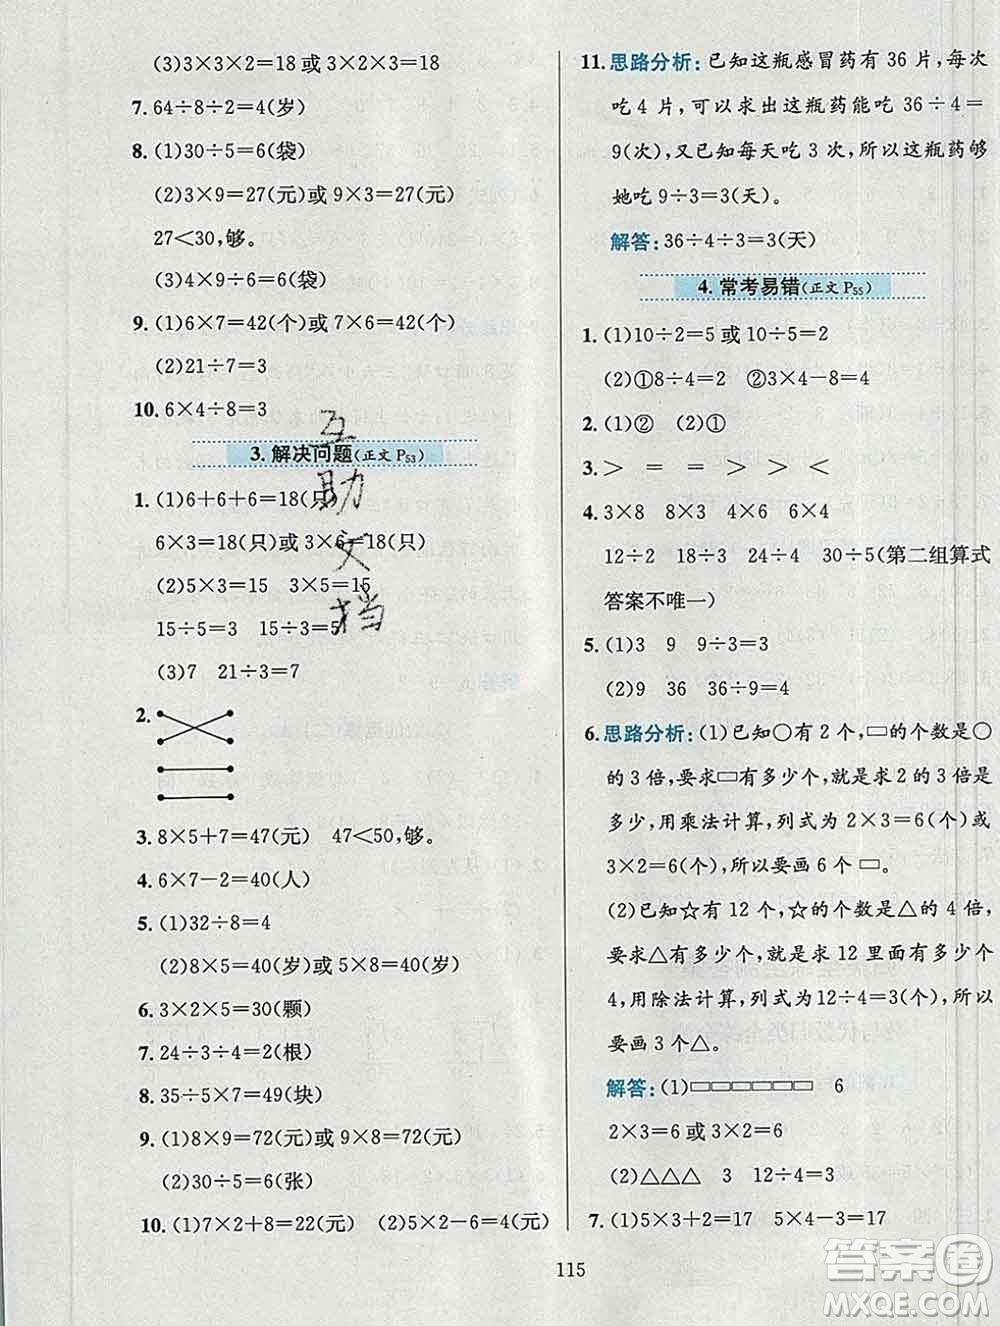 (3)3×3×2=18 或 3×2×3=18
7. 64÷8÷2=4(岁)
8. (1)30÷5=6(袋)
(2)3×9=27(元)或 9×3=27(元)
27<30,够。
(3)4×9÷6=6(袋)
9. (1)6×7=42(个)或 7×6=42(个)
(2)21÷7=3
10. 6×4÷8=3
3. 解决问题(正文 P53)
1. (1)6+6+6=18(只)
6×3=18(只)或 3×6=18(只)
(2)5×3=15 3×5=15
15÷5=3 15÷3=5
(3)7 21÷3=7
2.
3. 8×5+7=47(元) 47<50,够。
4. 6×7-2=40(人)
5. (1)32÷8=4
(2)8×5=40(岁)或 5×8=40(岁)
6. 3×2×5=30(颗)
7. 24÷3÷4=2(根)
8. 35÷5×7=49(块)
9. (1)8×9=72(元)或 9×8=72(元)
(2)30÷5=6(张)
10. (1)7×2+8=22(元) (2)5×2-6=4(元)
互助文档
11. 思路分析:已知这瓶感冒药有 36 片,每次
吃 4 片,可以求出这瓶药能吃 36÷4=
9(次),又已知每天吃 3 次,所以这瓶药够
她吃 9÷3=3(天)。
解答:36÷4÷3=3(天)
4. 常考易错(正文 P55)
1. (1)10÷2=5 或 10÷5=2
(2)①8÷4=2 ②3×4-8=4
2. (1)② (2)①
3. > = = > =
4. 3×8 8×3 4×6 6×4
12÷2 18÷3 24÷4 30÷5(第二组算式
答案不唯一)
5. (1)3 9 9÷3=3
(2)9 36 36÷9=4
6. 思路分析:(1)已知○有 2 个,▭的个数是○
的 3 倍,要求▭有多少个,就是求 2 的 3 倍是
多少,用乘法计算,列式为 2×3=6(个)或
3×2=6(个),所以要画 6 个 ▭。
(2)已知☆有 12 个,☆的个数是△的 4 倍,
要求△有多少个,就是求 12 里面有多少个
4,用除法计算,列式为 12÷4=3(个),所以
要画 3 个△。
解答:(1)▭▭▭▭▭▭ 6
2×3=6 或 3×2=6
(2)△△△ 3 12÷4=3
7. (1)5×3+2=17 5×4-3=17
115
答案圈
MXQE.COM